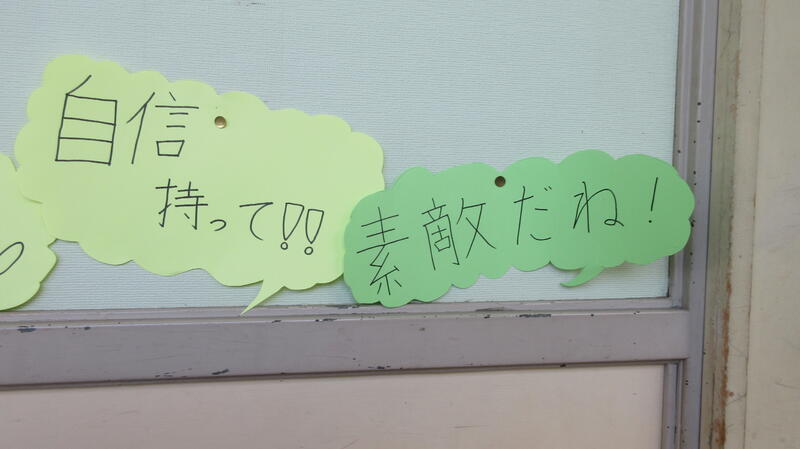 自信
持って!!
素敵だね!